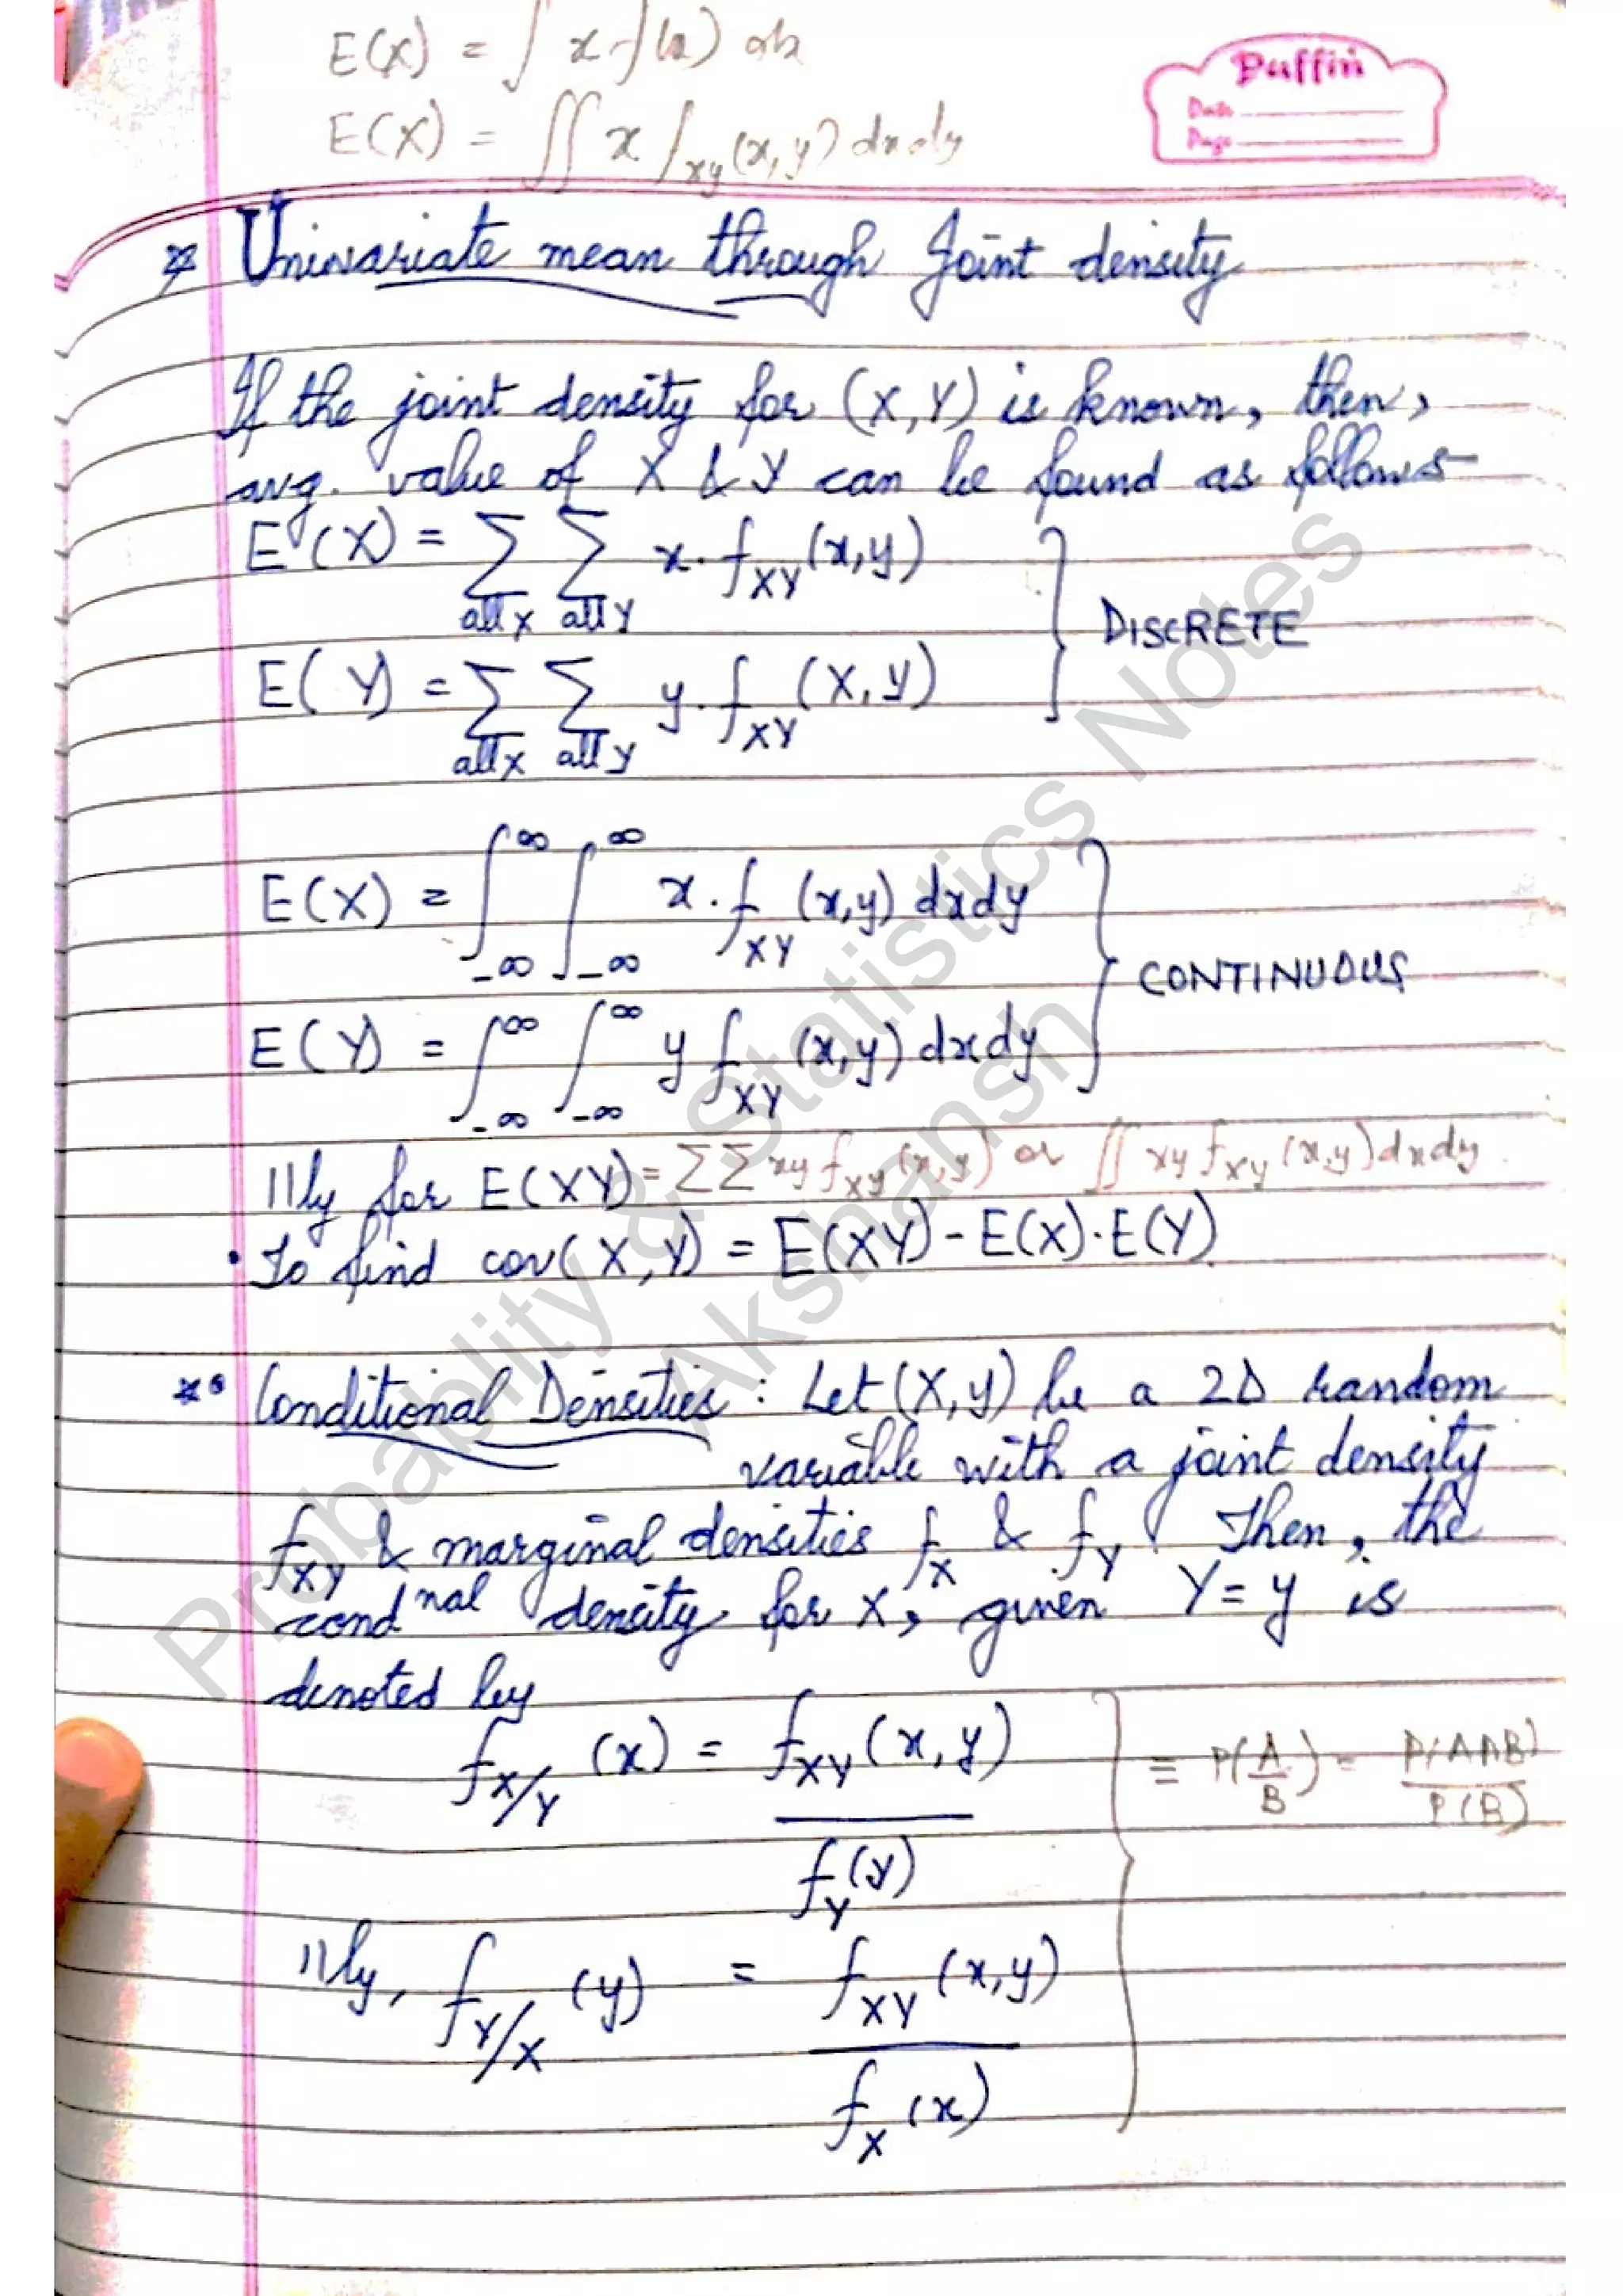 E(X) = ∫ x f(x) dx
E(X) = ∬ x f_xy(x,y) dx dy
Puffin
Date
Page
* Univariate mean through Joint density
If the joint density for (X,Y) is known, then,
avg. value of X & Y can be found as follows
E(X) = Σ_{all x} Σ_{all y} x. f_XY(x,y)
DISCRETE
E(Y) = Σ_{all x} Σ_{all y} y. f_XY(x,y)
E(X) = ∫_{-∞}^{∞} ∫_{-∞}^{∞} x. f_XY(x,y) dxdy
CONTINUOUS
E(Y) = ∫_{-∞}^{∞} ∫_{-∞}^{∞} y f_XY(x,y) dxdy
llly for E(XY) = ΣΣ xy f_xy(x,y) or ∬ xy f_xy(x,y) dxdy.
• To find cov(X,Y) = E(XY) - E(X)·E(Y)
*• Conditional Densities : Let (X,Y) be a 2D random
variable with a joint density
f_XY & marginal densities f_X & f_Y. Then, the
cond^nal density for X, given Y = y is
denoted by
f_X/Y (x) = f_XY(x,y) / f_Y(y) ≡ P(A/B) = P(A∩B) / P(B)
llly, f_Y/X (y) = f_XY(x,y) / f_X(x)
Probability & Statistics Notes
Akshansh